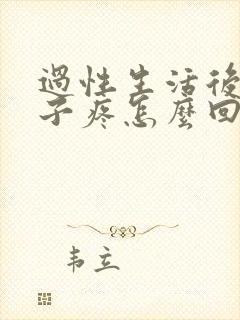 過性生活後
子疼怎麼回
韦立